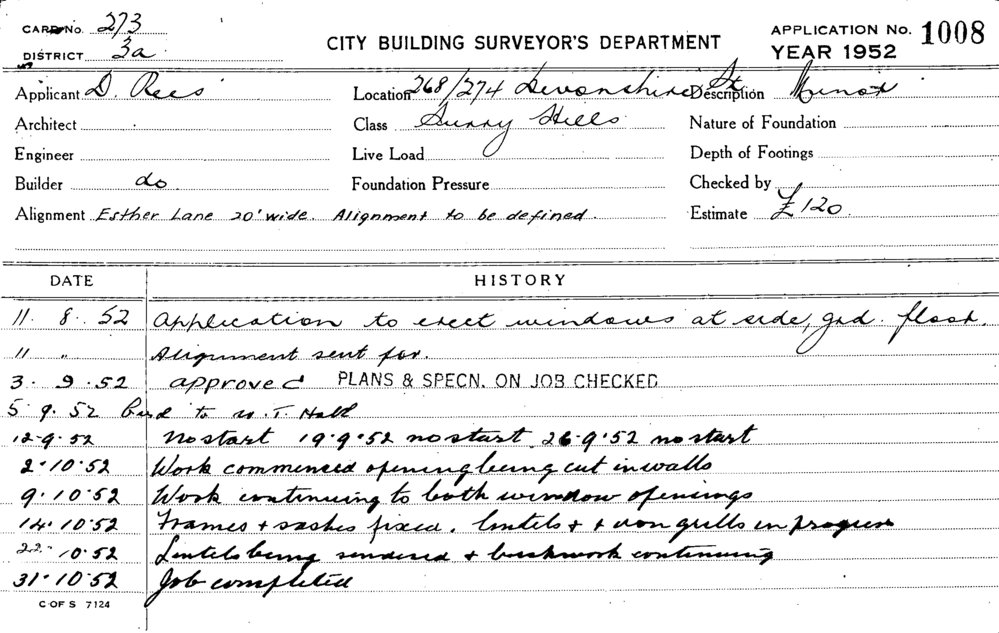 CARD No. 273
DISTRICT 3a
CITY BUILDING SURVEYOR'S DEPARTMENT
APPLICATION No. 1008
YEAR 1952
Applicant D. Rees Location 268/274 Devonshire St Description Minor
Architect Class Surry Hills Nature of Foundation
Engineer Live Load Depth of Footings
Builder do Foundation Pressure Checked by
Alignment Esther Lane 20' wide. Alignment to be defined. Estimate £120
DATE HISTORY
11. 8. 52 Application to erect windows at side, grd. floor.
11 " Alignment sent for.
3. 9. 52 approved PLANS & SPECN. ON JOB CHECKED
5. 9. 52 Card to
12.9.52 No start 19.9.52 no start 26.9.52 no start
2.10.52 Work commenced opening being cut in walls
9.10.52 Work continuing to both window openings
14.10.52 Frames + sashes fixed. lintels + + iron grills in progress
22.10.52 Lintels being rendered + brickwork continuing
31.10.52 Job completed
C OF S 7124